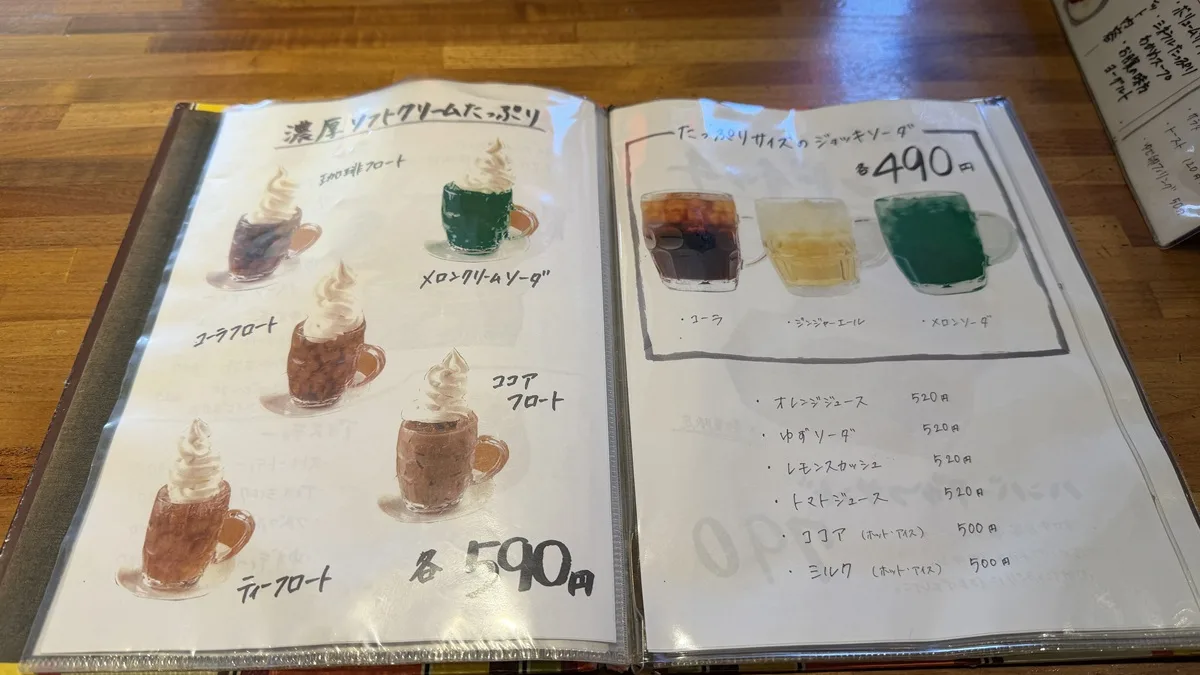 濃厚ソフトクリームたっぷり
珈琲フロート
メロンクリームソーダ
コーラフロート
ココア
フロート
ティーフロート
各590円
たっぷりサイズのジョッキソーダ
各490円
・コーラ
・ジンジャーエール
・メロンソーダ
・オレンジジュース 520円
・ゆずソーダ 520円
・レモンスカッシュ 520円
・トマトジュース 520円
・ココア (ホット・アイス) 500円
・ミルク (ホット・アイス) 500円